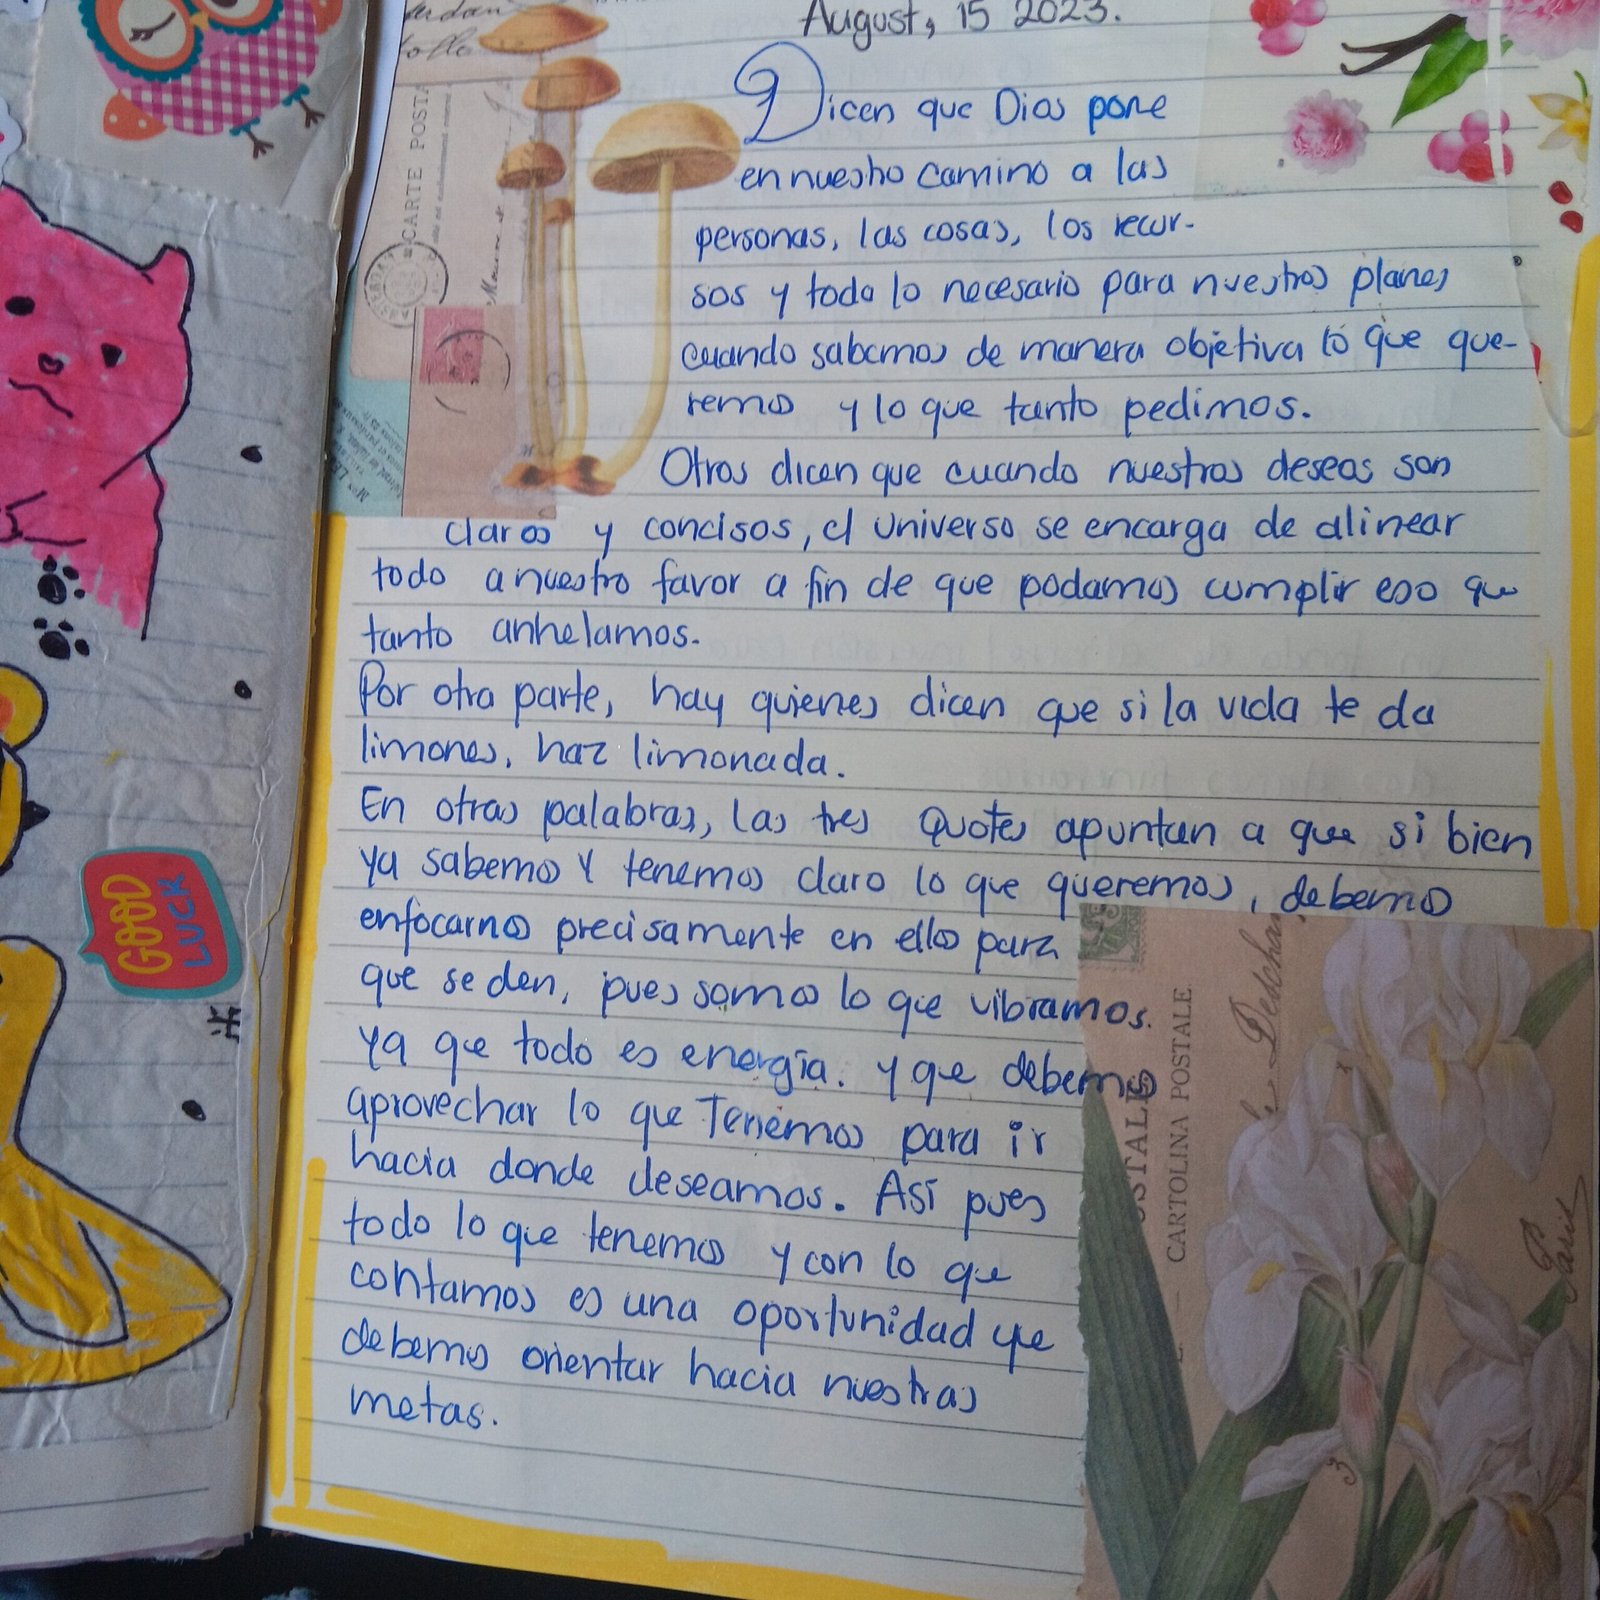 August, 15 2023.
Dicen que Dios pone
en nuestro camino a las
personas, las cosas, los recur-
sos y todo lo necesario para nuestros planes
cuando sabemos de manera objetiva lo que que-
remos y lo que tanto pedimos.
Otros dicen que cuando nuestros deseos son
claros y concisos, el universo se encarga de alinear
todo a nuestro favor a fin de que podamos cumplir eso que
tanto anhelamos.
Por otra parte, hay quienes dicen que si la vida te da
limones, haz limonada.
En otras palabras, las tres Quotes apuntan a que si bien
ya sabemos y tenemos claro lo que queremos, debemos
enfocarnos precisamente en ellos para
que se den, pues somos lo que vibramos.
Ya que todo es energía. y que debemos
aprovechar lo que Tenemos para ir
hacia donde deseamos. Así pues
todo lo que tenemos y con lo que
contamos es una oportunidad que
debemos orientar hacia nuestras
metas.
GOOD
LUCK
CARTE POSTA
CARTOLINA POSTALE
OSTALE
Paris